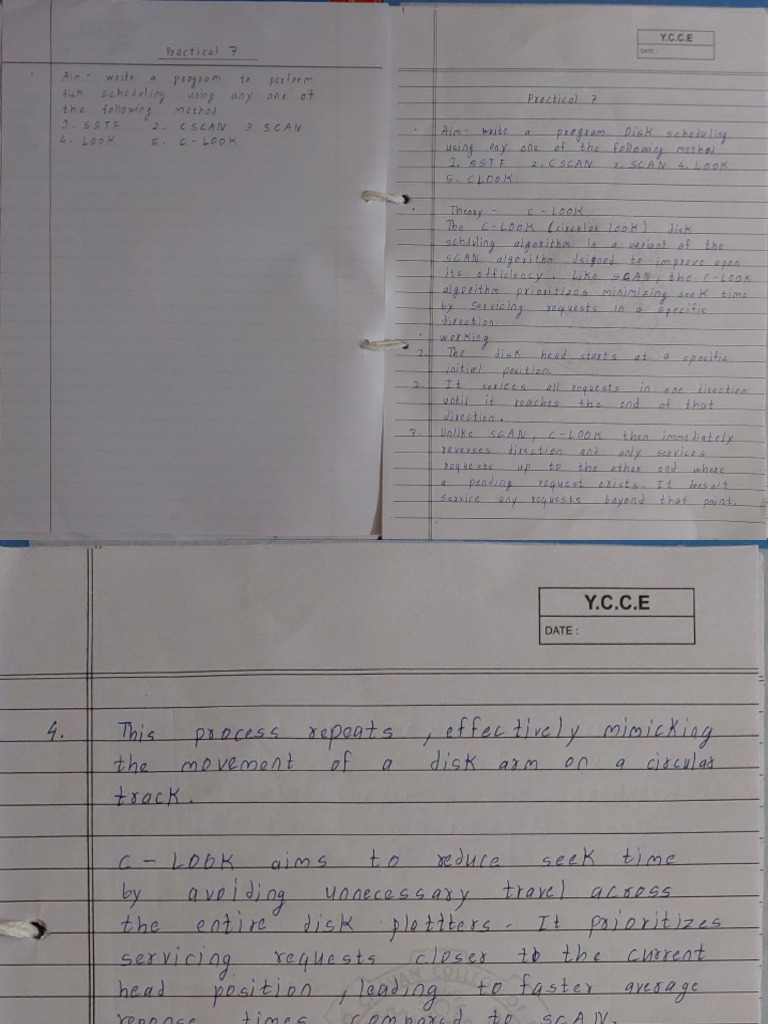 Practical 7
Aim - write a program to perform
disk scheduling using any one of
the following method
1. SSTF 2. CSCAN 3 SCAN
4. LOOK 5. C-LOOK
Y.C.C.E
DATE:
Practical 7
Aim- write a program Disk scheduling
using any one of the following method
1. SSTF 2. CSCAN 3. SCAN 4. LOOK
5. CLOOK
Theory - C-LOOK
The C-LOOK (circular look) disk
schduling algorithm is a variant of the
SCAN algorithm dsigned to improve upon
its efficiency. Like SCAN, the C-LOOK
algorithm prioritizes minimizing seek time
by servicing requests in a specific
direction.
working
1. The disk head starts at a specific
initial position.
2. It serices all requests in one direction
until it reaches the end of that
direction.
3. Unlike SCAN, C-LOOK then immediately
reverses direction and only services
requests up to the other end where
a pending request exists. It doesn't
service any requests beyond that point.
Y.C.C.E
DATE :
4. This process repeats, effectively mimicking
the movement of a disk arm on a circular
track.
C-LOOK aims to reduce seek time
by avoiding unnecessary travel across
the entire disk plottters. It prioritizes
servicing requests closer to the current
head position, leading to faster average
reponse times compared to SCAN.